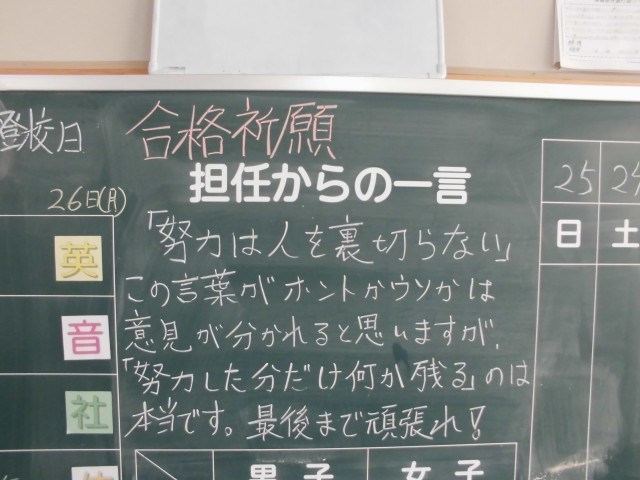 登校日
合格祈願
担任からの一言
26日(月)
「努力は人を裏切らない」
この言葉がホントかウソかは
意見が分かれると思いますが、
「努力した分だけ何か残る」のは
本当です。最後まで頑張れ!
英
音
社
25
24
日
土
男子
女子